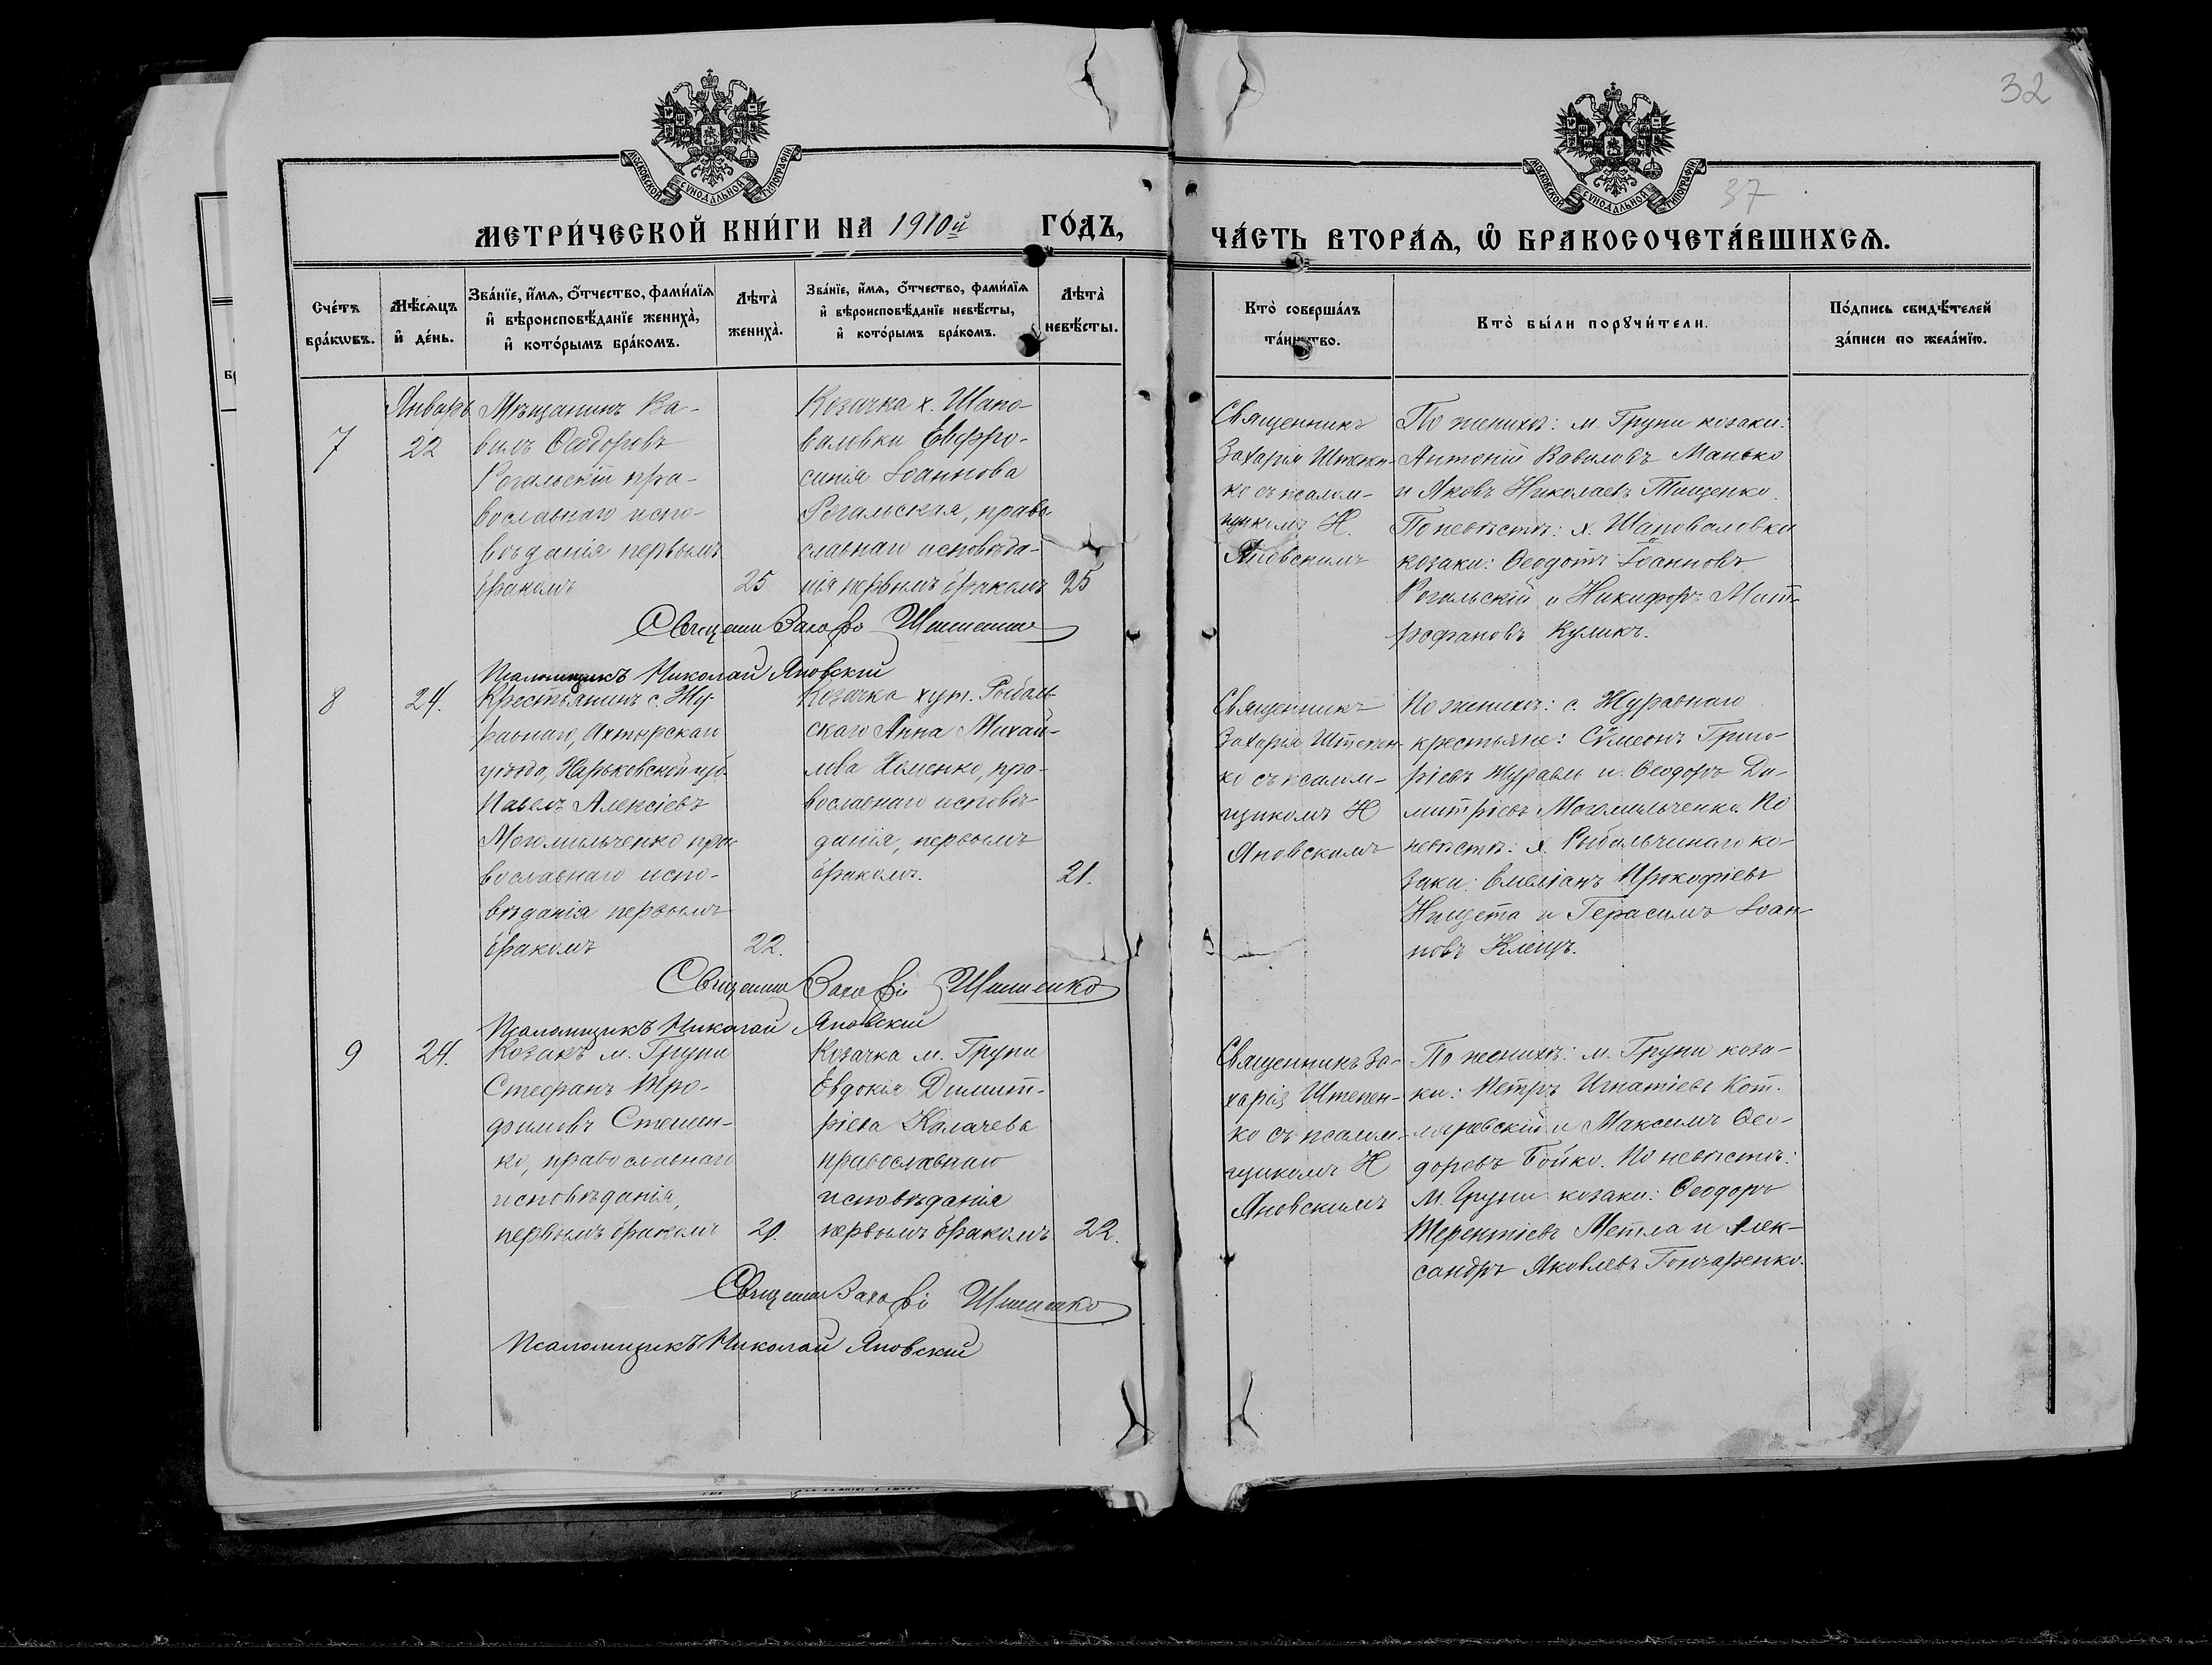 32
37
МОСКОВСКОЙ СѴНОДАЛЬНОЙ ТИПОГРАФІИ
МОСКОВСКОЙ СѴНОДАЛЬНОЙ ТИПОГРАФІИ
МЕТРИ́ЧЕСКОЙ КНИ́ГИ НА 1910й ГО́ДЪ,
ЧА́СТЬ ВТОРА́Ѧ, Ѽ БРАКОСОЧЕТА́ВШИХСѦ.
Сче́тъ
бра́кѡвъ.
Мѣ́сѧцъ
и҆ де́нь.
Зва́нїе, и҆́мѧ, ѻ҆́тчество, фами́лїѧ
и҆ вѣроисповѣ́данїе жениха̀,
и҆ кото́рымъ бра́комъ.
Лѣта̀
жениха̀.
Зва́нїе, и҆́мѧ, ѻ҆́тчество, фами́лїѧ
и҆ вѣроисповѣ́данїе невѣ́сты,
и҆ кото́рымъ бра́комъ.
Лѣта̀
невѣ́сты.
Кто̀ соверша́лъ
та́инство.
Кто̀ бы́ли порꙋчи́тели.
По́дпись свидѣ́телей
за́писи по жела́нїю.
7
Январь
22
Мѣщанинъ Ва-
вилъ Ѳеодоровъ
Рогальскій пра-
вославнаго испо-
вѣданія первымъ
бракомъ
25
Козачка х. Шапо-
валовки Евфро-
синія Іоаннова
Рогальская, право-
славнаго исповѣда-
нія первымъ бракомъ
25
Священникъ
Захарія Штепен-
ко съ псалом-
щикомъ Н.
Яновскимъ
По женихѣ: м. Груни козаки:
Антоній Вавиловъ Манько
и Яковъ Николаевъ Тищенко.
По невѣстѣ: х. Шаповаловки
козаки: Ѳеодотъ Іоанновъ
Рогальскій и Никифоръ Мит-
рофановъ Куликъ.
Псаломщикъ Николай Яновскій
8
24.
Крестьянинъ с. Жу-
равнаго, Ахтырскаго
уѣзда, Харьковской губ.
Павелъ Алексіевъ
Могомильченко пра-
вославнаго испо-
вѣданія первымъ
бракомъ
22.
Козачка хут. Рыбаль-
скаго Анна Михай-
лова Хоменко, пра-
вославнаго исповѣ-
данія, первымъ
бракомъ.
21.
Священникъ
Захарія Штепен-
ко съ псалом-
щикомъ Н
Яновскимъ
По женихѣ: с. Журавнаго
крестьяне: Сѵмеонъ Григо-
ріевъ Журавль и Ѳеодоръ Ди-
митріевъ Могомильченко. По
невѣстѣ: х. Рыбальчинаго ко-
заки: Емеліанъ Прокофіевъ
Нищета и Герасимъ Іоан-
новъ Клещъ.
Псаломщикъ Николай Яновскій
9
24.
Козакъ м. Груни
Стефанъ Тро-
фимовъ Стецен-
ко, православнаго
исповѣданія,
первымъ бракомъ
21.
Козачка м. Груни
Евдокія Димит-
ріева Колачева
православнаго
исповѣданія
первымъ бракомъ
22.
Священникъ За-
харія Штепен-
ко съ псалом-
щикомъ Н
Яновскимъ
По женихѣ: м. Груни коза-
ки: Петръ Игнатіевъ Кот-
ляревскій и Максимъ Ѳео-
доровъ Бойко. По невѣстѣ:
м. Груни козаки: Ѳеодоръ
Терентіевъ Метла и Алек-
сандръ Яковлевъ Гончаренко.
Псаломщикъ Николай Яновскій